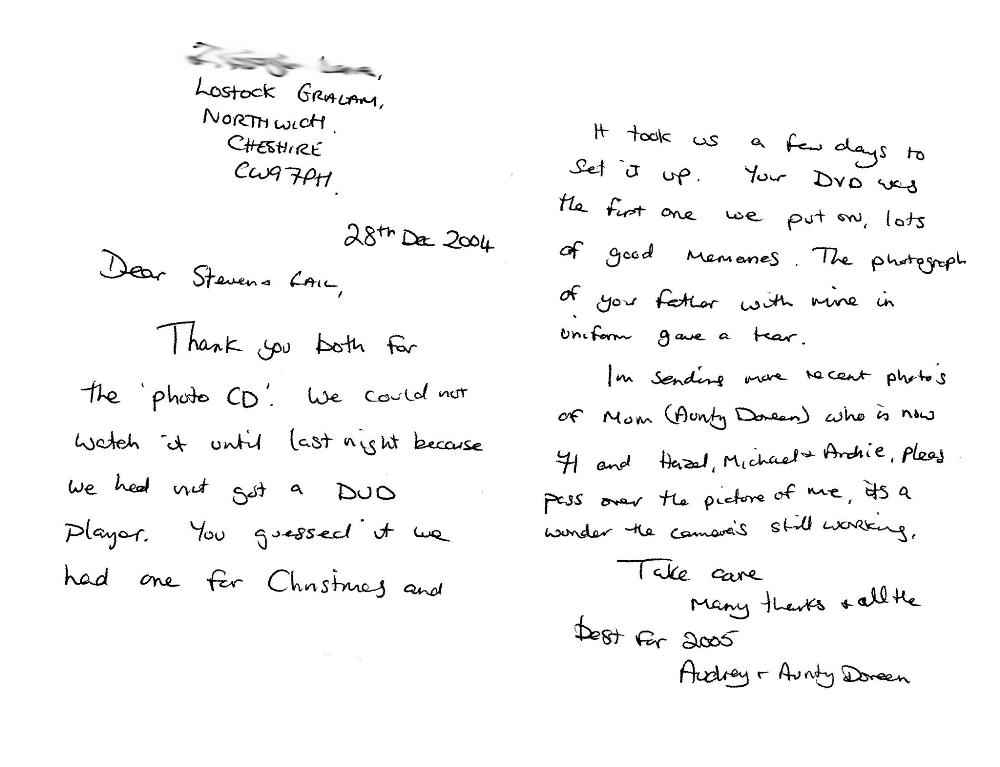 Lostock GRALAM,
NORTHWICH.
CHESHIRE
CW9 7PH.
28th Dec 2004
Dear Steven & GAIL,
Thank you both for
the 'photo CD'. We could not
watch it until last night because
we had not got a DVD
player. You guessed it we
had one for Christmas and
It took us a few days to
set it up. Your DVD was
the first one we put on, lots
of good memories. The photograph
of your father with mine in
uniform gave a tear.
Im sending more recent photo's
of Mom (Aunty Doreen) who is now
71 and Hazel, Michael + Archie, pleas
pass over the picture of me, its a
wonder the camera's still working.
Take care
Many thanks + all the
best for 2005
Audrey + Aunty Doreen